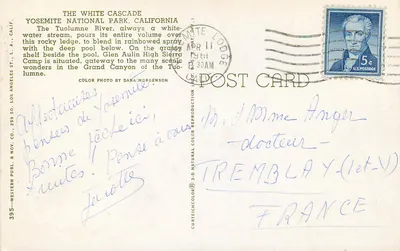 THE WHITE CASCADE
YOSEMITE NATIONAL PARK, CALIFORNIA
The Tuolumne River, always a white-
water stream, pours its entire volume over
this rocky ledge, to blend in rainbowed spray
with the deep pool below. On the grassy
shelf beside the pool, Glen Aulin High Sierra
Camp is situated, gateway to the many scenic
wonders in the Grand Canyon of the Tuo-
lumne.
COLOR PHOTO BY DANA MORGENSON
LODGE
APR 11
AM
5¢
POST CARD
Affectueuses
pensées du Yosemite.
Bonne pêche, ies
truites! Pense à vous
M. & Mme Anger
docteur
TREMBLAY (I.et.V)
FRANCE
395—WESTERN PUBL. & NOV. CO., 259 SO. LOS ANGELES ST., L. A., CALIF.